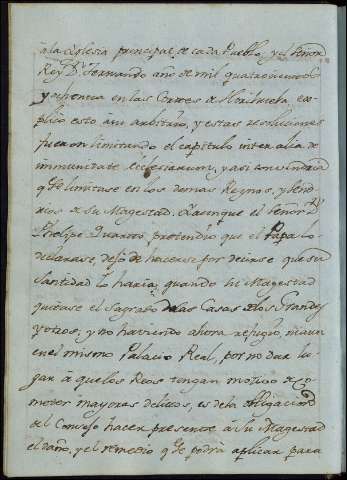 à la iglesia principal de cada Pueblo, y el Señor
Rey Dn. Fernando año de mil quatrocientos
y ochenta en las Cortes de Orihuela, ex-
plicó esto à su arbitrio, y estas resoluciones
fueron limitando el capitulo inter alia de
immunitate Ecclesiarum, y asi convendria
qe. se limitase en los demas Reynos, y Seño-
rios de Su Magestad. Y aunque el Señor Dn.
Phelipe Quarto pretendió que el Papa lo
declarase, dejó de hacerse por decirse que su
Santidad lo haria, quando su Magestad
quitase el Sagrado de las Casas de los Grandes
y otros, y no haviendo ahora refugio, ni aun
en el mismo Palacio Real, por no dar lu-
gar à que los Reos tengan motivo de Co-
meter mayores delitos, es de la obligacion
del Consejo hacer presente à Su Magestad
el daño, y el remedio qe. se podrà aplicar para